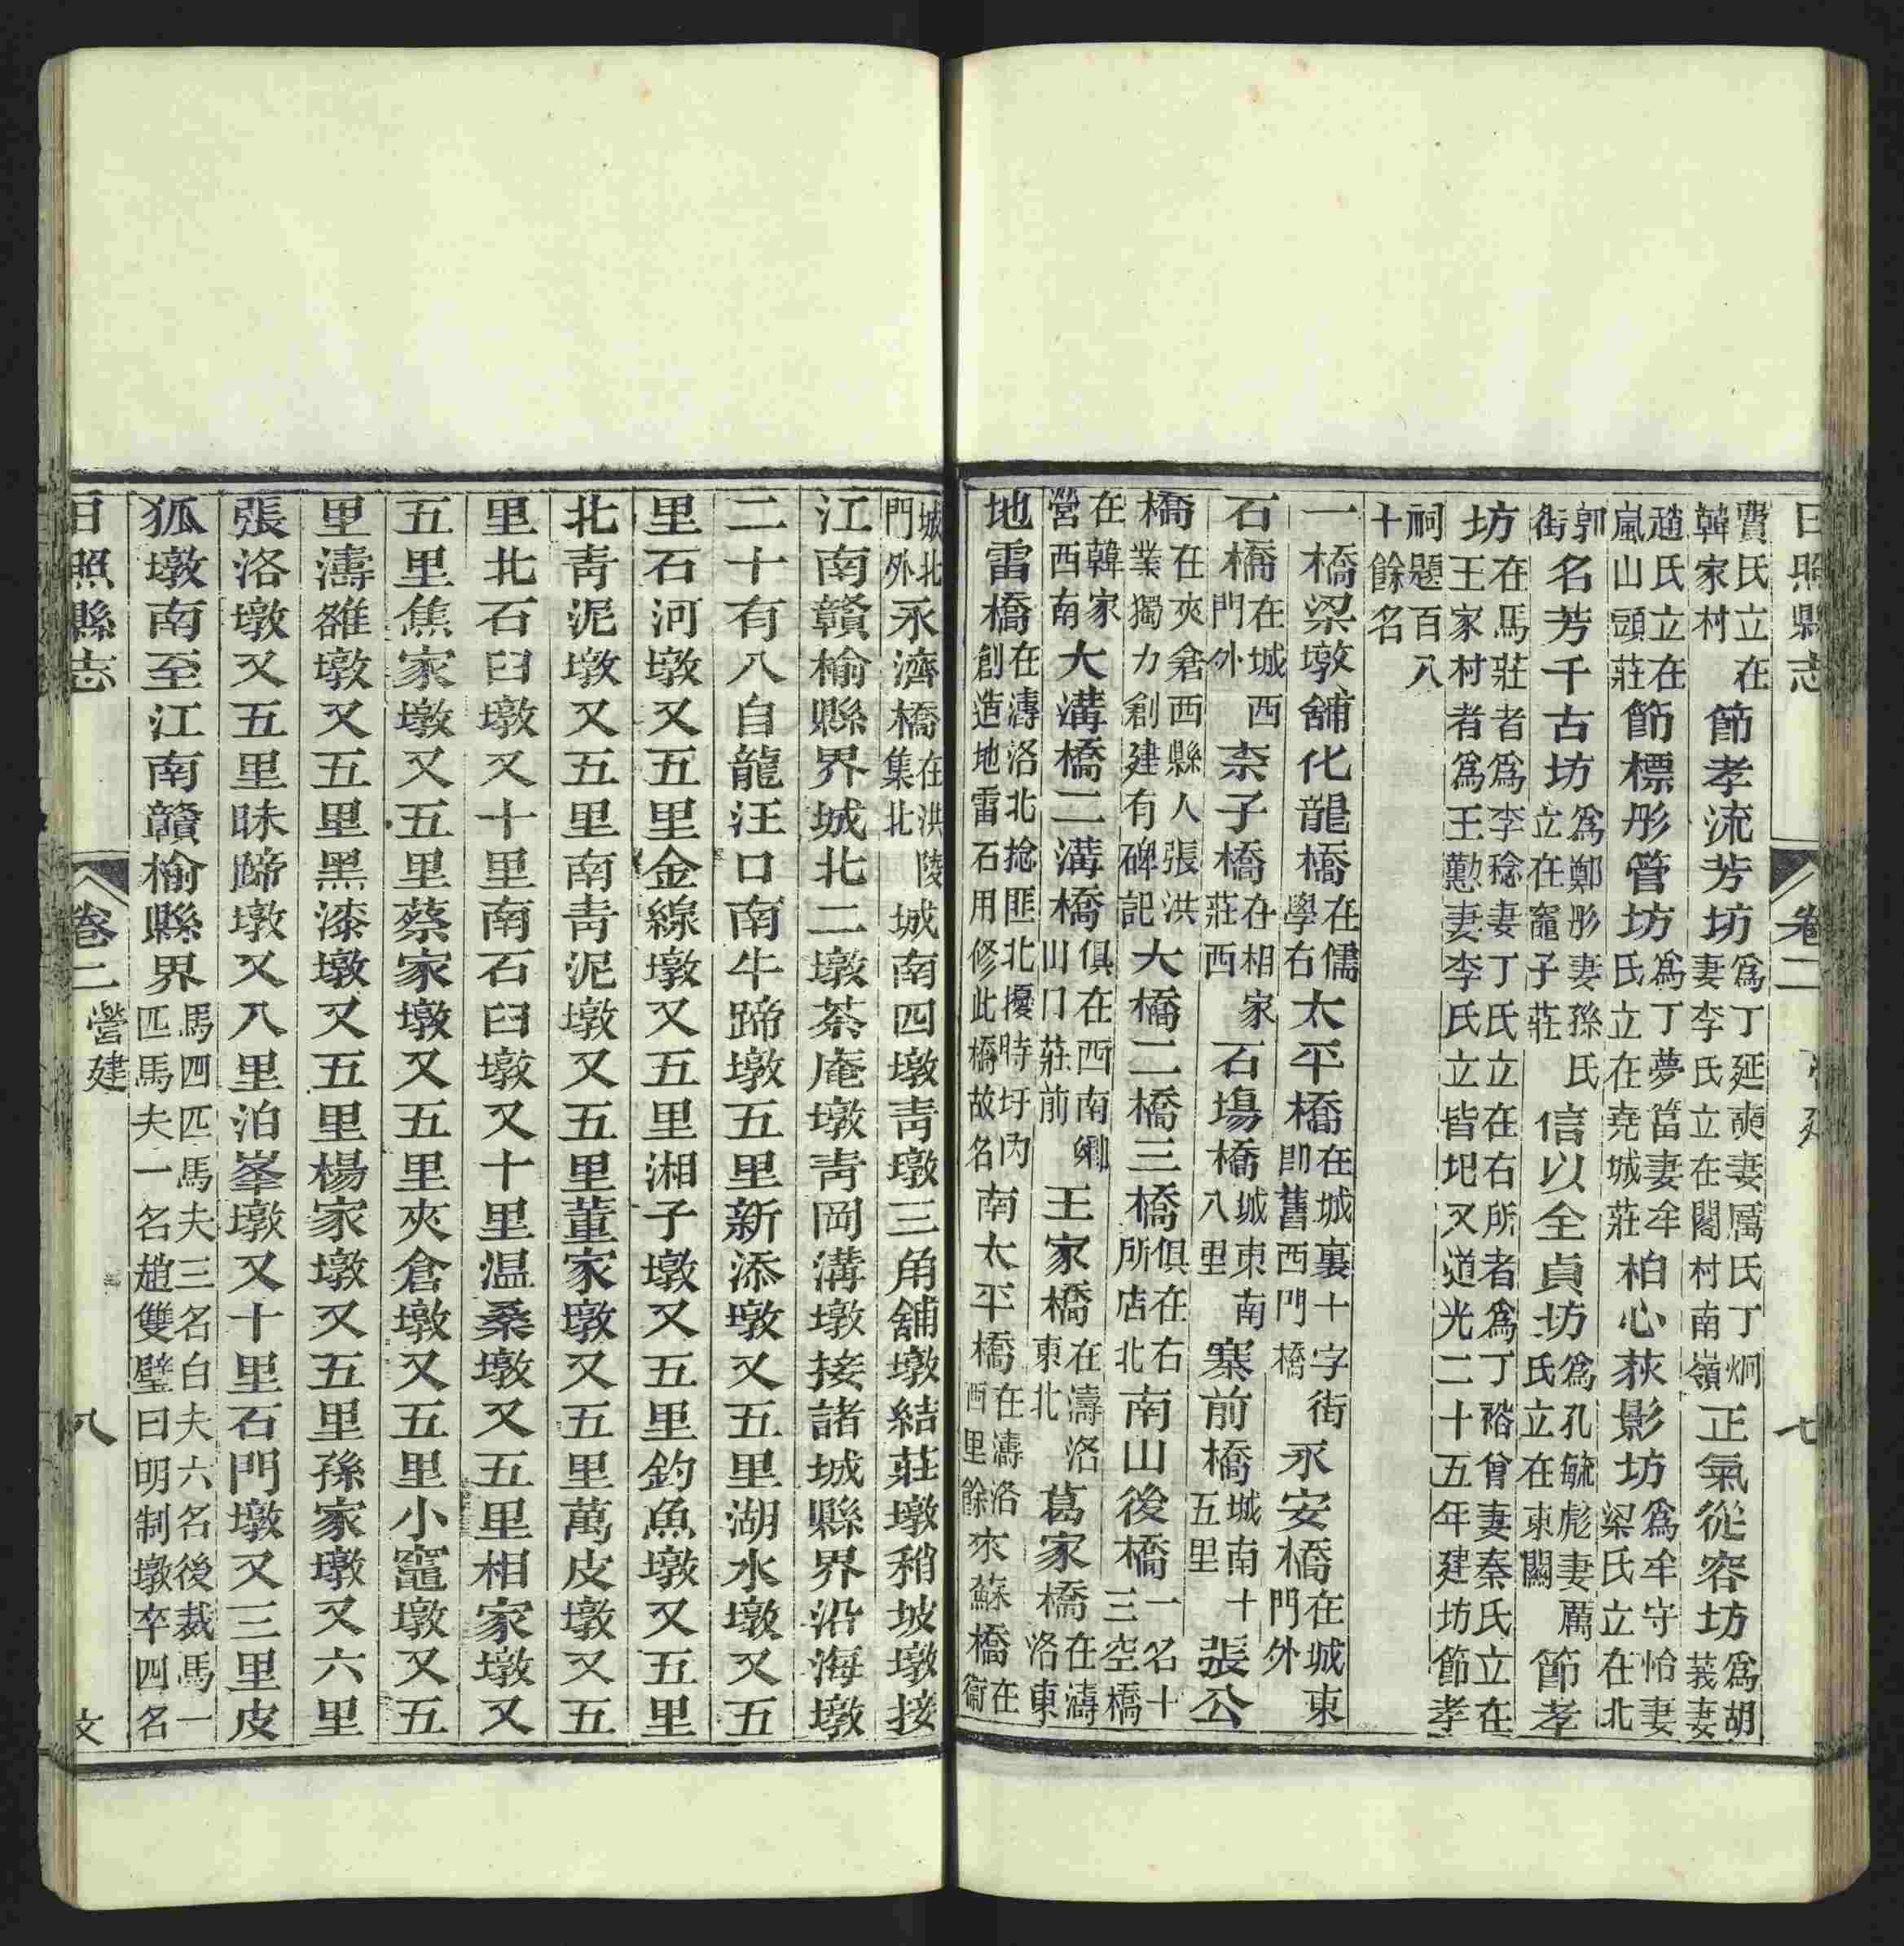 日照縣志 卷二 七
費氏立在韓家村 節孝流芳坊 爲丁延奭妻厲氏丁炯妻李氏立在閣村南嶺 正氣從容坊 爲胡莪妻
趙氏立在嵐山頭莊 節標彤管坊 爲丁夢筩妻牟氏立在堯城莊 柏心荻影坊 爲牟守恰妻梁氏立在北
郭街 名芳千古坊 爲鄭彤妻孫氏立在竈子莊 信以全貞坊 爲孔毓彪妻厲氏立在東關 節孝
坊 在馬莊者爲李稔妻丁氏立在右所者爲丁裕曾妻秦氏立在王家村者爲王懃妻李氏立皆圯又道光二十五年建坊節孝
祠題百八十餘名
一橋梁墩舖化龍橋 在儒學右 太平橋 在城裏十字街卽舊西門橋 永安橋 在城東門外
石橋 在城西門外 柰子橋 在相家莊西 石場橋 城東南八里 寨前橋 城南十五里 張公
橋 在夾倉西縣人張洪業獨力創建有碑記 大橋二橋三橋 俱在右所店北 南山後橋 一名十三空橋
在韓家營西南 大溝橋二溝橋 俱在西南鄉山口莊前 王家橋 在濤洛東北 葛家橋 在濤洛東
地雷橋 在濤洛北捻匪北擾時圩內創造地雷石用修此橋故名 南太平橋 在濤洛西里餘 來蘇橋 在衛
城北門外 永濟橋 在洪陵集北 城南四墩青墩三角舖墩結莊墩稍坡墩接
江南贛榆縣界城北二墩茶庵墩青岡溝墩接諸城縣界沿海墩
二十有八自龍汪口南牛蹄墩五里新添墩又五里湖水墩又五
里石河墩又五里金線墩又五里湘子墩又五里釣魚墩又五里
北青泥墩又五里南青泥墩又五里董家墩又五里萬皮墩又五
里北石臼墩又十里南石臼墩又十里温桑墩又五里相家墩又
五里焦家墩又五里蔡家墩又五里夾倉墩又五里小竈墩又五
里濤雒墩又五里黑漆墩又五里楊家墩又五里孫家墩又六里
張洛墩又五里昧蹄墩又八里泊峯墩又十里石門墩又三里皮
狐墩南至江南贛榆縣界 馬四匹馬夫三名白夫六名後裁馬一匹馬夫一名趙雙璧曰明制墩卒四名
日照縣志 卷二 營建 八 文